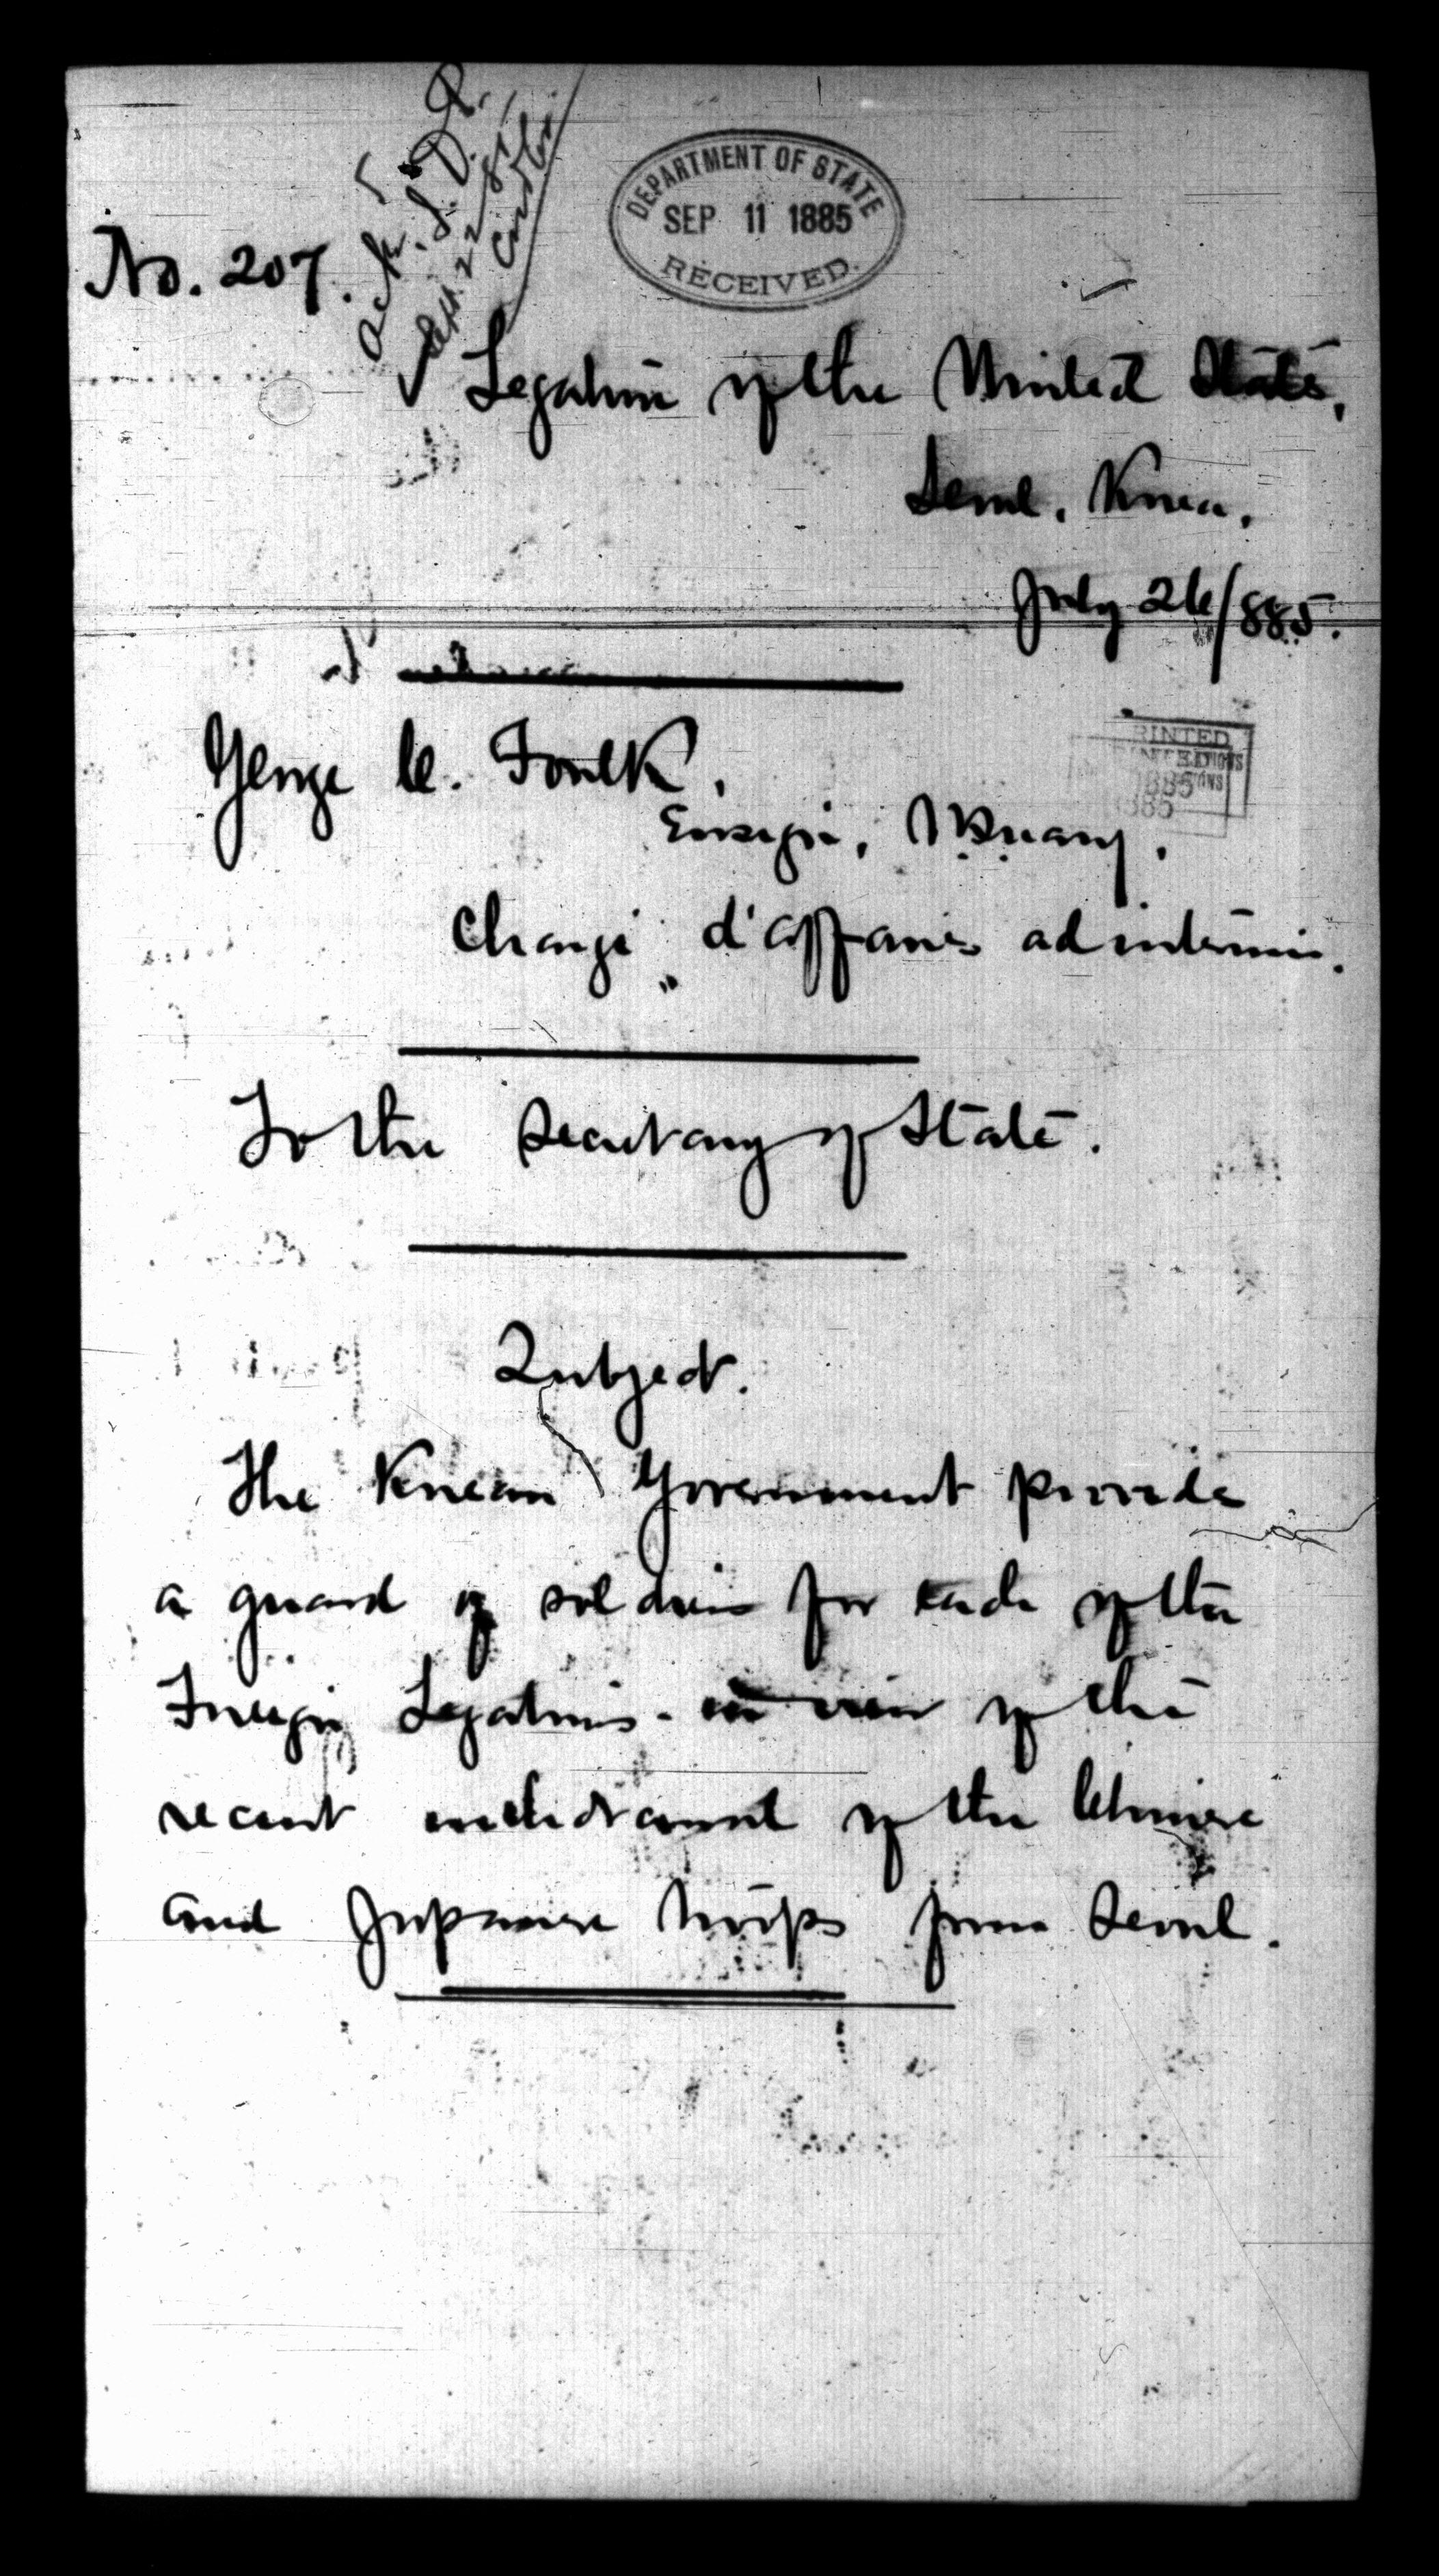 No. 207.
DEPARTMENT OF STATE
SEP 11 1885
RECEIVED.
Legation of the United States,
Seoul, Korea.
July 26/885.
George C. Foulk,
Ensign, U.S. Navy.
Chargé d'affaires ad interim.
To the Secretary of State.
Subject.
The Korean Government provide
a guard of soldiers for each of the
Foreign Legations - in view of the
recent withdrawal of the Chinese
and Japanese troops from Seoul.